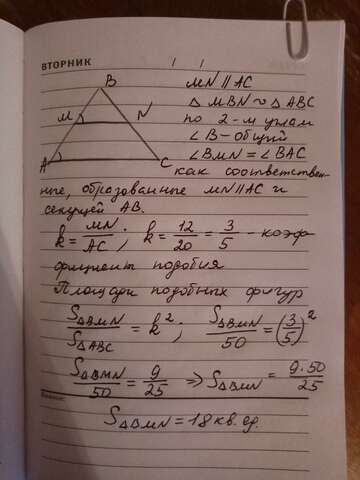 ВТОРНИК / /
B
M N
A C
MN || AC
△ MBN ~ △ ABC
по 2-м углам
∠B - общий
∠BMN = ∠BAC
как соответствен-
ные, образованные MN || AC и
секущей AB.
k = MN/AC ; k = 12/20 = 3/5 - коэф
фициент подобия
Площади подобных фигур
S△BMN/S△ABC = k² ; S△BMN/50 = (3/5)²
S△BMN/50 = 9/25 ⇒ S△BMN = 9·50/25
S△BMN = 18 кв. ед.